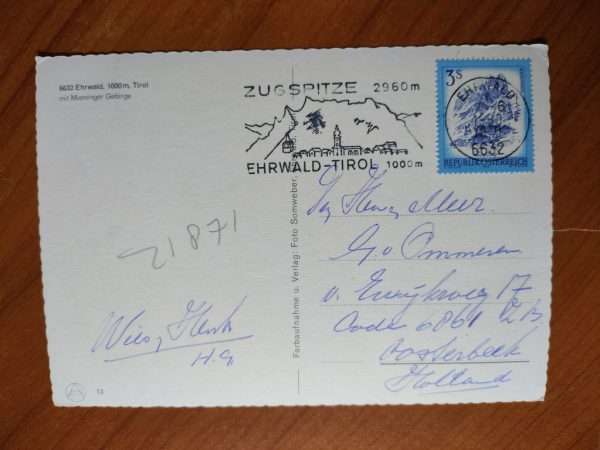 6632 Ehrwald, 1000m, Tirol
mit Mieminger Gebirge
ZUGSPITZE 2960m
EHRWALD-TIROL 1000m
3S
EHRWALD
6632
REPUBLIK ÖSTERREICH
Farbaufnahme u. Verlag: Foto Somweber,
21871
Fam Meer.
G. v. Ommeren
v. 17
Code 6861 ZB
Oosterbeek
Holland
Wies, Henk
H.G.
13